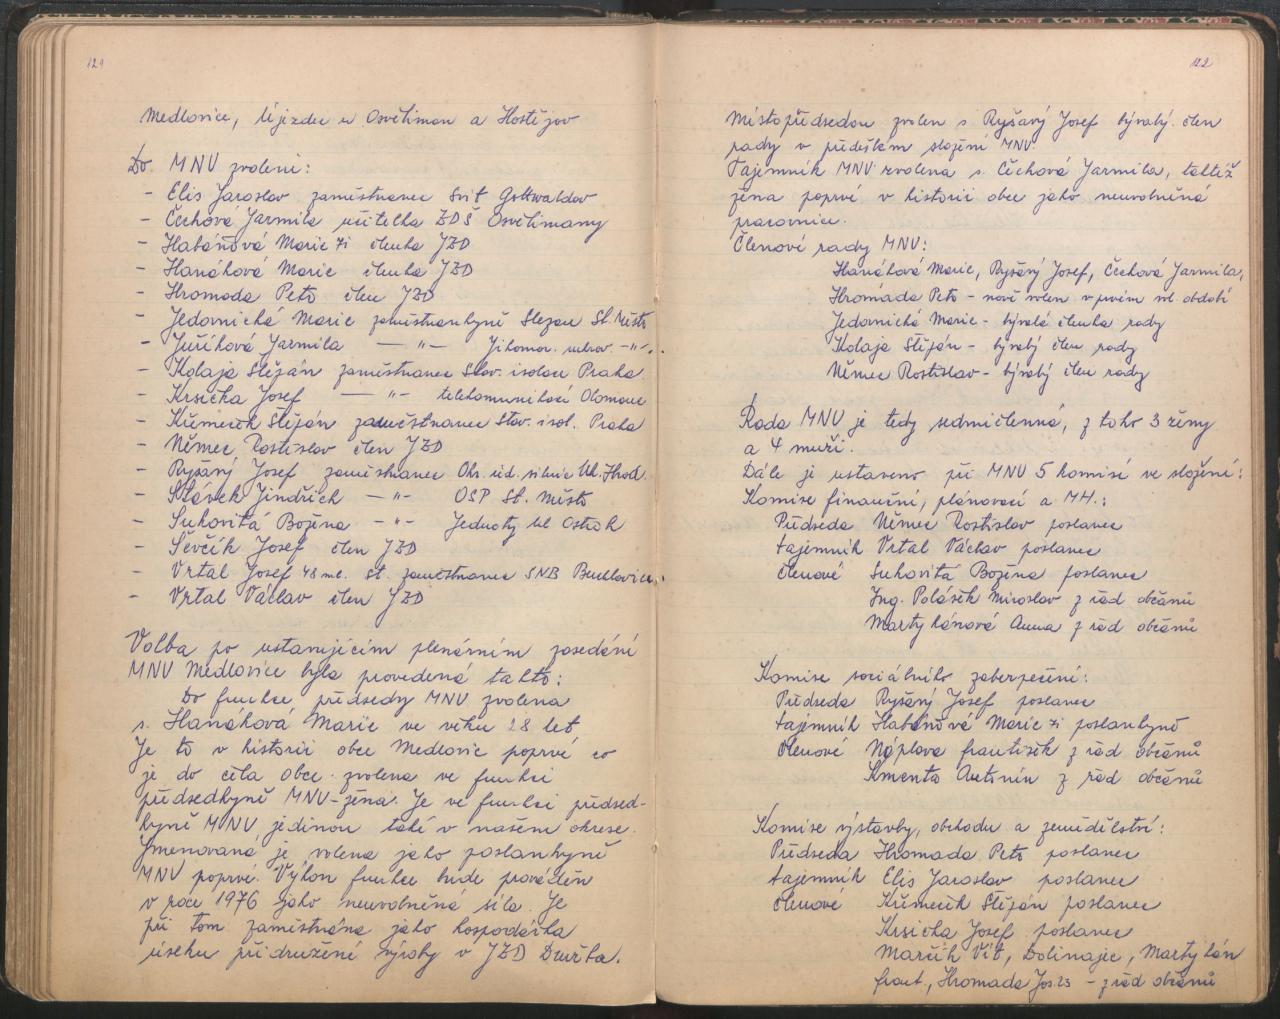 121
Medlovice, Újezdec u Osvětiman a Hostějov
Do MNV zvoleni:
- Elis Jaroslav zaměstnanec Svit Gottwaldov
- Čechová Jarmila učitelka ZDŠ Osvětimany
- Habáňová Marie 71 členka JZD
- Hanáková Marie členka JZD
- Hromada Petr člen JZD
- Jedovnická Marie zaměstnankyně Slezan St. Město
- Juříková Jarmila — " — Jihomor. cukrov. -"-
- Kolaja Štěpán zaměstnanec Stav. isolace Praha
- Krsička Josef — " — telekomunikací Olomouc
- Křemeček Štěpán zaměstnanec Stav. isol. Praha
- Němec Rostislav člen JZD
- Ryšavý Josef zaměstnanec Okr. síd. silnic Uh. Hrad.
- Slávek Jindřich — " — OSP St. Město
- Suchovitá Božena — " — Jednoty Uh Ostroh
- Ševčík Josef člen JZD
- Vrtal Josef 48 ml. st. zaměstnanec SNB Buchlovice
- Vrtal Václav člen JZD
Volba po ustavujícím plenárním zasedání
MNV Medlovice byla provedená takto:
Do funkce předsedy MNV zvolena
s. Hanáková Marie ve věku 28 let
Je to v historii obce Medlovic poprvé co
je do čela obce zvolena ve funkci
předsedkyně MNV-žena. Je ve funkci předsed-
kyně MNV jedinou také v našem okrese.
Jmenovaná je volena jako poslankyně
MNV poprvé. Výkon funkce bude prováděn
v roce 1976 jako neuvolněná síla. Je
při tom zaměstnána jako hospodářka
úseku přidružené výroby v JZD Družba.
122
Místopředsedou zvolen s Ryšavý Josef bývalý člen
rady v předešlém složení MNV
Tajemník MNV zvolena s. Čechová Jarmila, taktéž
žena poprvé v historii obce jako neuvolněná
pracovnice.
Členové rady MNV:
Hanáková Marie, Ryšavý Josef, Čechová Jarmila,
Hromada Petr - nově volen v prvém vol. období
Jedovnická Marie - bývalá členka rady
Kolaja Štěpán - bývalý člen rady
Němec Rostislav - bývalý člen rady
Rada MNV je tedy sedmičlenná, z toho 3 ženy
a 4 muži.
Dále je ustaveno při MNV 5 komisí ve složení:
Komise finanční, plánovací a MH.:
Předseda Němec Rostislav poslanec
tajemník Vrtal Václav poslanec
členové Suchovitá Božena poslanec
Ing. Polášek Miroslav z řad občanů
Martykánová Anna z řad občanů
Komise sociálního zabezpečení:
Předseda Ryšavý Josef poslanec
tajemník Habáňová Marie 71 poslankyně
členové Náplava František z řad občanů
Kmenta Antonín z řad občanů
Komise výstavby, obchodu a zemědělství:
Předseda Hromada Petr poslanec
tajemník Elis Jaroslav poslanec
členové Křemeček Štěpán poslanec
Krsička Josef poslanec
Mařík Vít, Dolinajec, Martykán
frant., Hromada Jos. 23 - z řad občanů